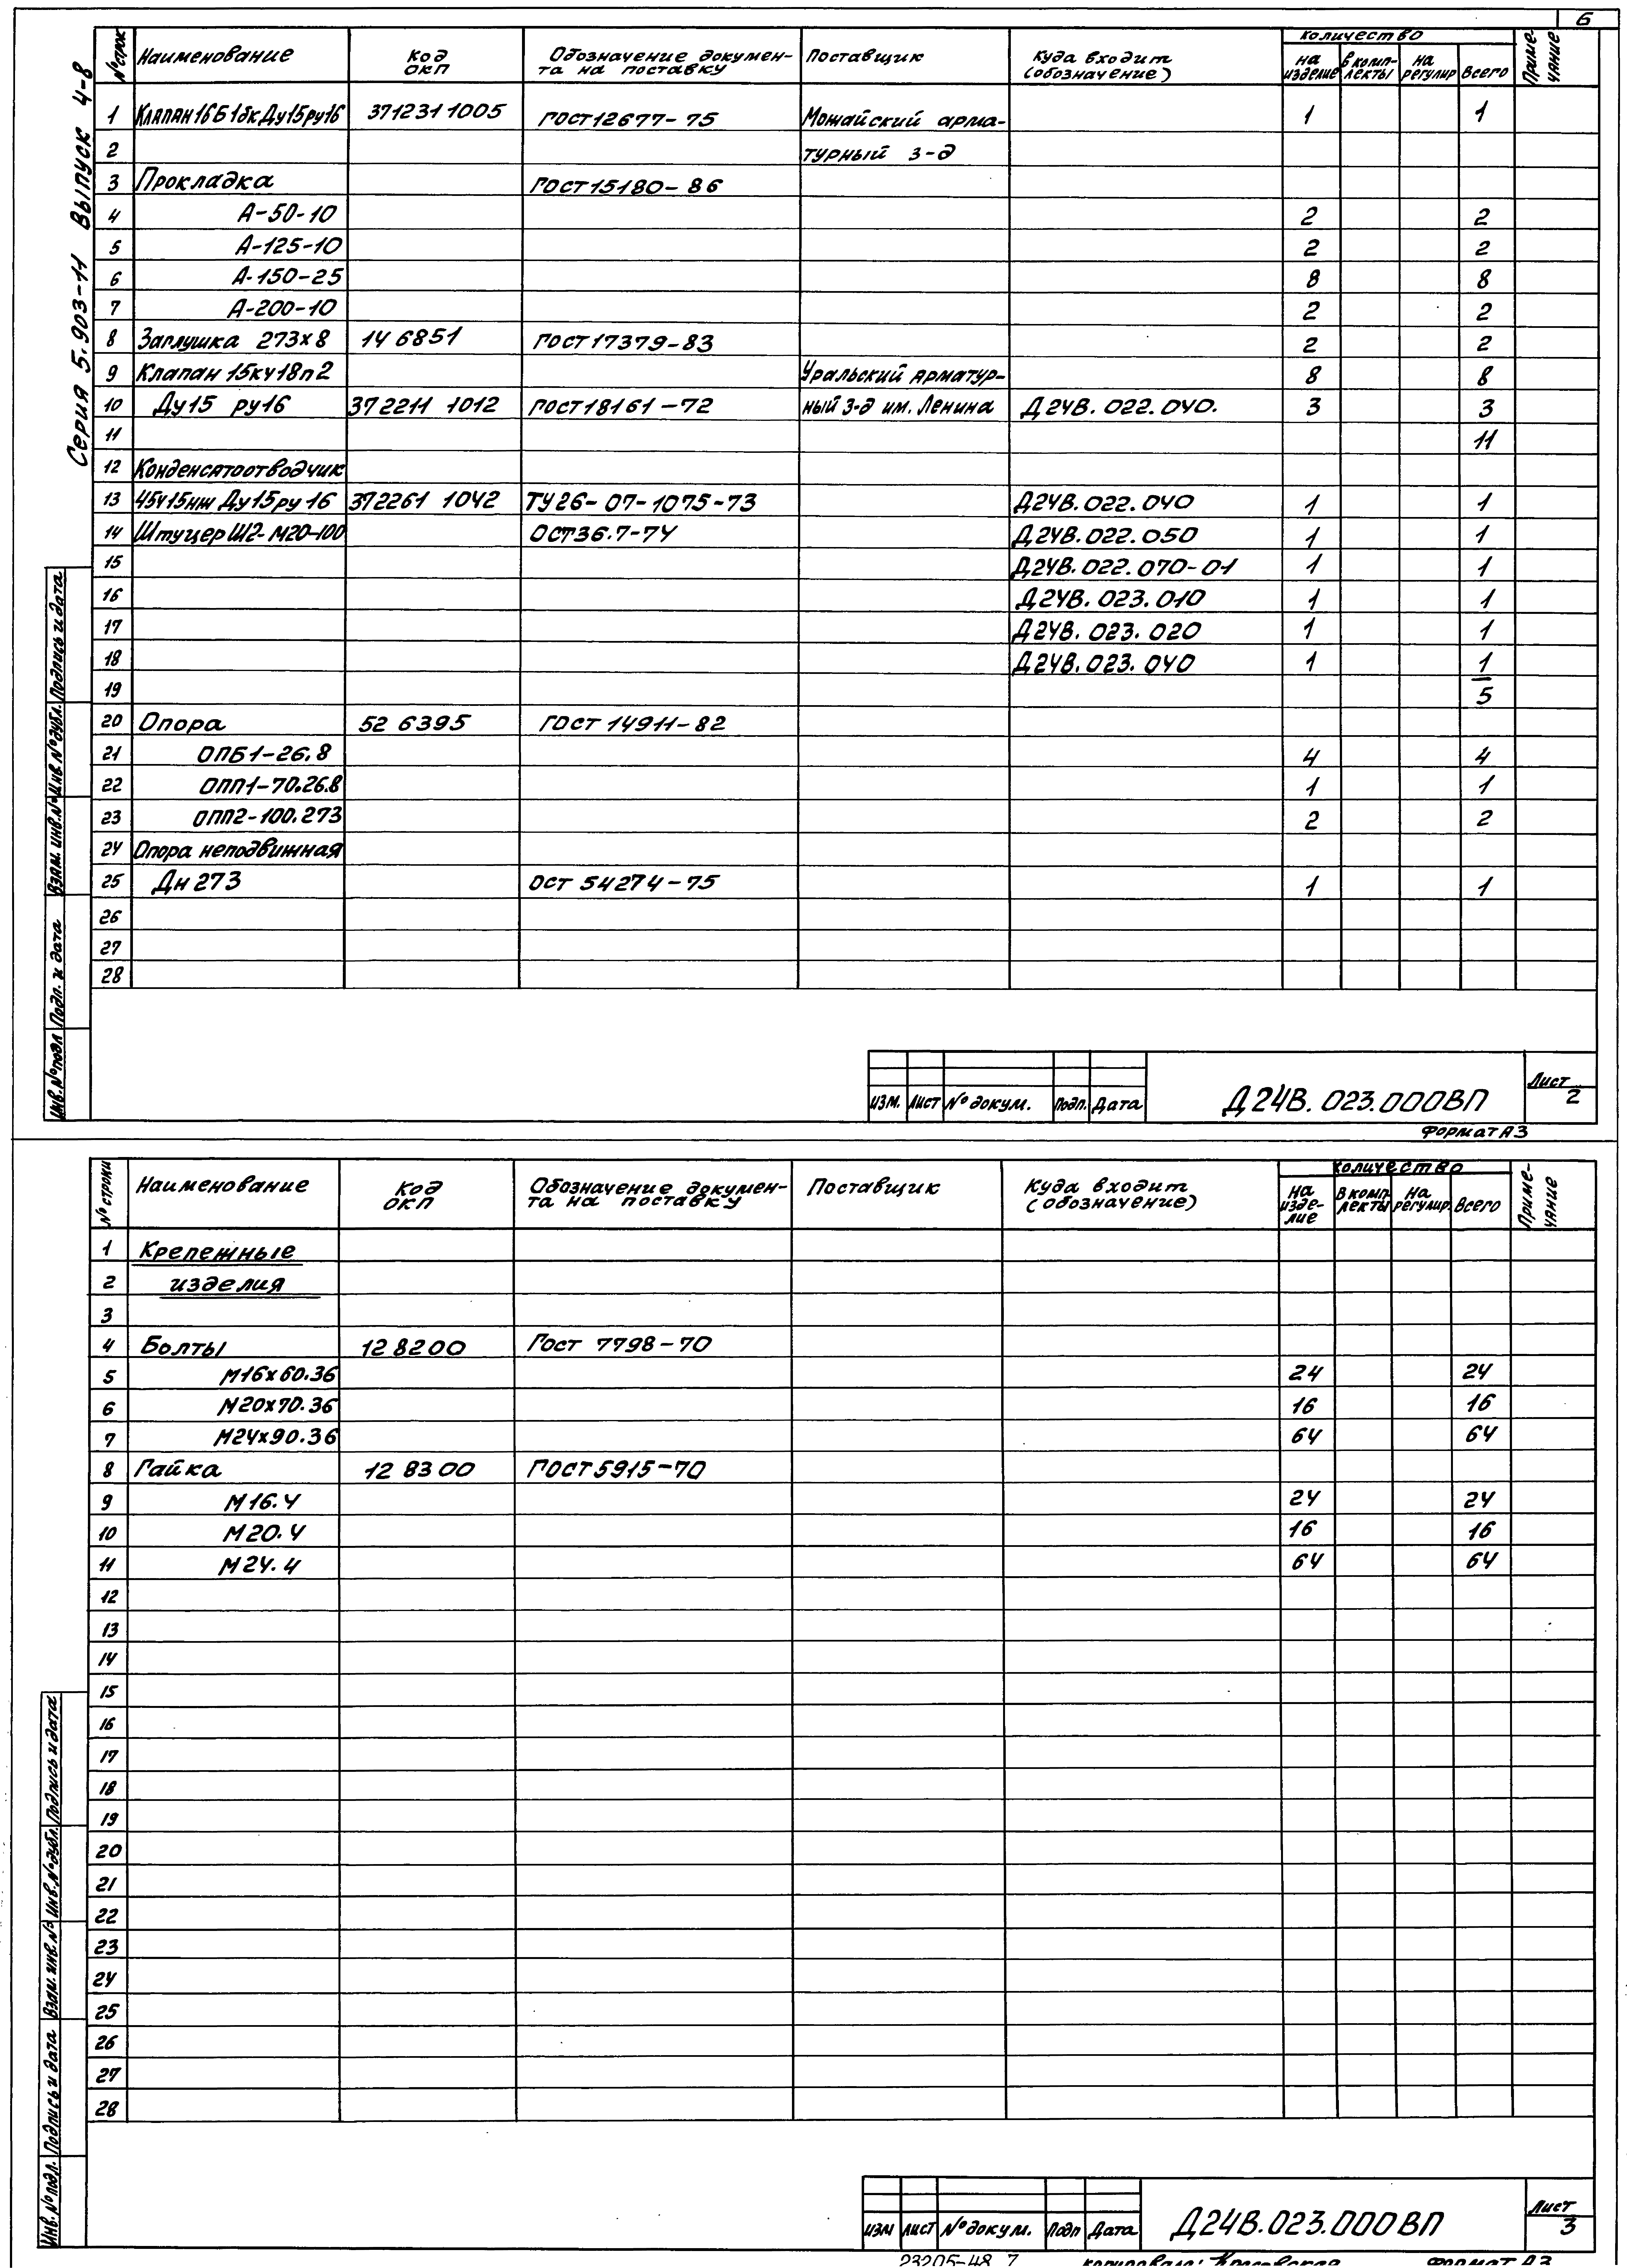 6
Серия 5.903-11 Выпуск 4-8
№ строк Наименование Код ОКП Обозначение докумен-та на поставку Поставщик Куда входит (обозначение) Количество на изделие в комп-лекты на регулир Всего Приме-чание
1 Клапан 16Б1бк Ду15 ру16 371231 1005 ГОСТ 12677-75 Можайский арма- 1 1
2 турный з-д
3 Прокладка ГОСТ 15180-86
4 А-50-10 2 2
5 А-125-10 2 2
6 А-150-25 8 8
7 А-200-10 2 2
8 Заглушка 273х8 14 6851 ГОСТ 17379-83 2 2
9 Клапан 15кч18п2 Уральский арматур- 8 8
10 Ду15 ру16 372211 1012 ГОСТ 18161-72 ный з-д им. Ленина Д24В.022.040. 3 3
11 11
12 Конденсатоотводчик
13 45ч15нж Ду15 ру 16 372261 1042 ТУ 26-07-1075-73 Д24В.022.040 1 1
14 Штуцер Ш2-М20-100 ОСТ 36.7-74 Д24В.022.050 1 1
15 Д24В.022.070-01 1 1
16 Д24В.023.010 1 1
17 Д24В.023.020 1 1
18 Д24В.023.040 1 1
19 5
20 Опора 52 6395 ГОСТ 14911-82
21 ОПБ1-26.8 4 4
22 ОПП1-70.26.8 1 1
23 ОПП2-100.273 2 2
24 Опора неподвижная
25 Дн 273 ОСТ 54274-75 1 1
26
27
28
Инв.№подл Подп. и дата Взам. инв.№ Инв.№дубл. Подпись и дата
изм. лист № докум. Подп. Дата Д24В.023.000ВП Лист 2
Формат А3
№ строки Наименование Код ОКП Обозначение докумен-та на поставку Поставщик Куда входит (обозначение) Количество На изде-лие В комп-лекты На регулир. Всего Приме-чание
1 Крепежные
2 изделия
3
4 Болты 12 8200 ГОСТ 7798-70
5 М16х60.36 24 24
6 М20х70.36 16 16
7 М24х90.36 64 64
8 Гайка 12 8300 ГОСТ 5915-70
9 М16.4 24 24
10 М20.4 16 16
11 М24.4 64 64
12
13
14
15
16
17
18
19
20
21
22
23
24
25
26
27
28
Инв.№подл. Подпись и дата Взам. инв.№ Инв.№дубл. Подпись и дата
изм лист № докум. Подп Дата Д24В.023.000ВП Лист 3
23205-48 7 копировала: Формат А3